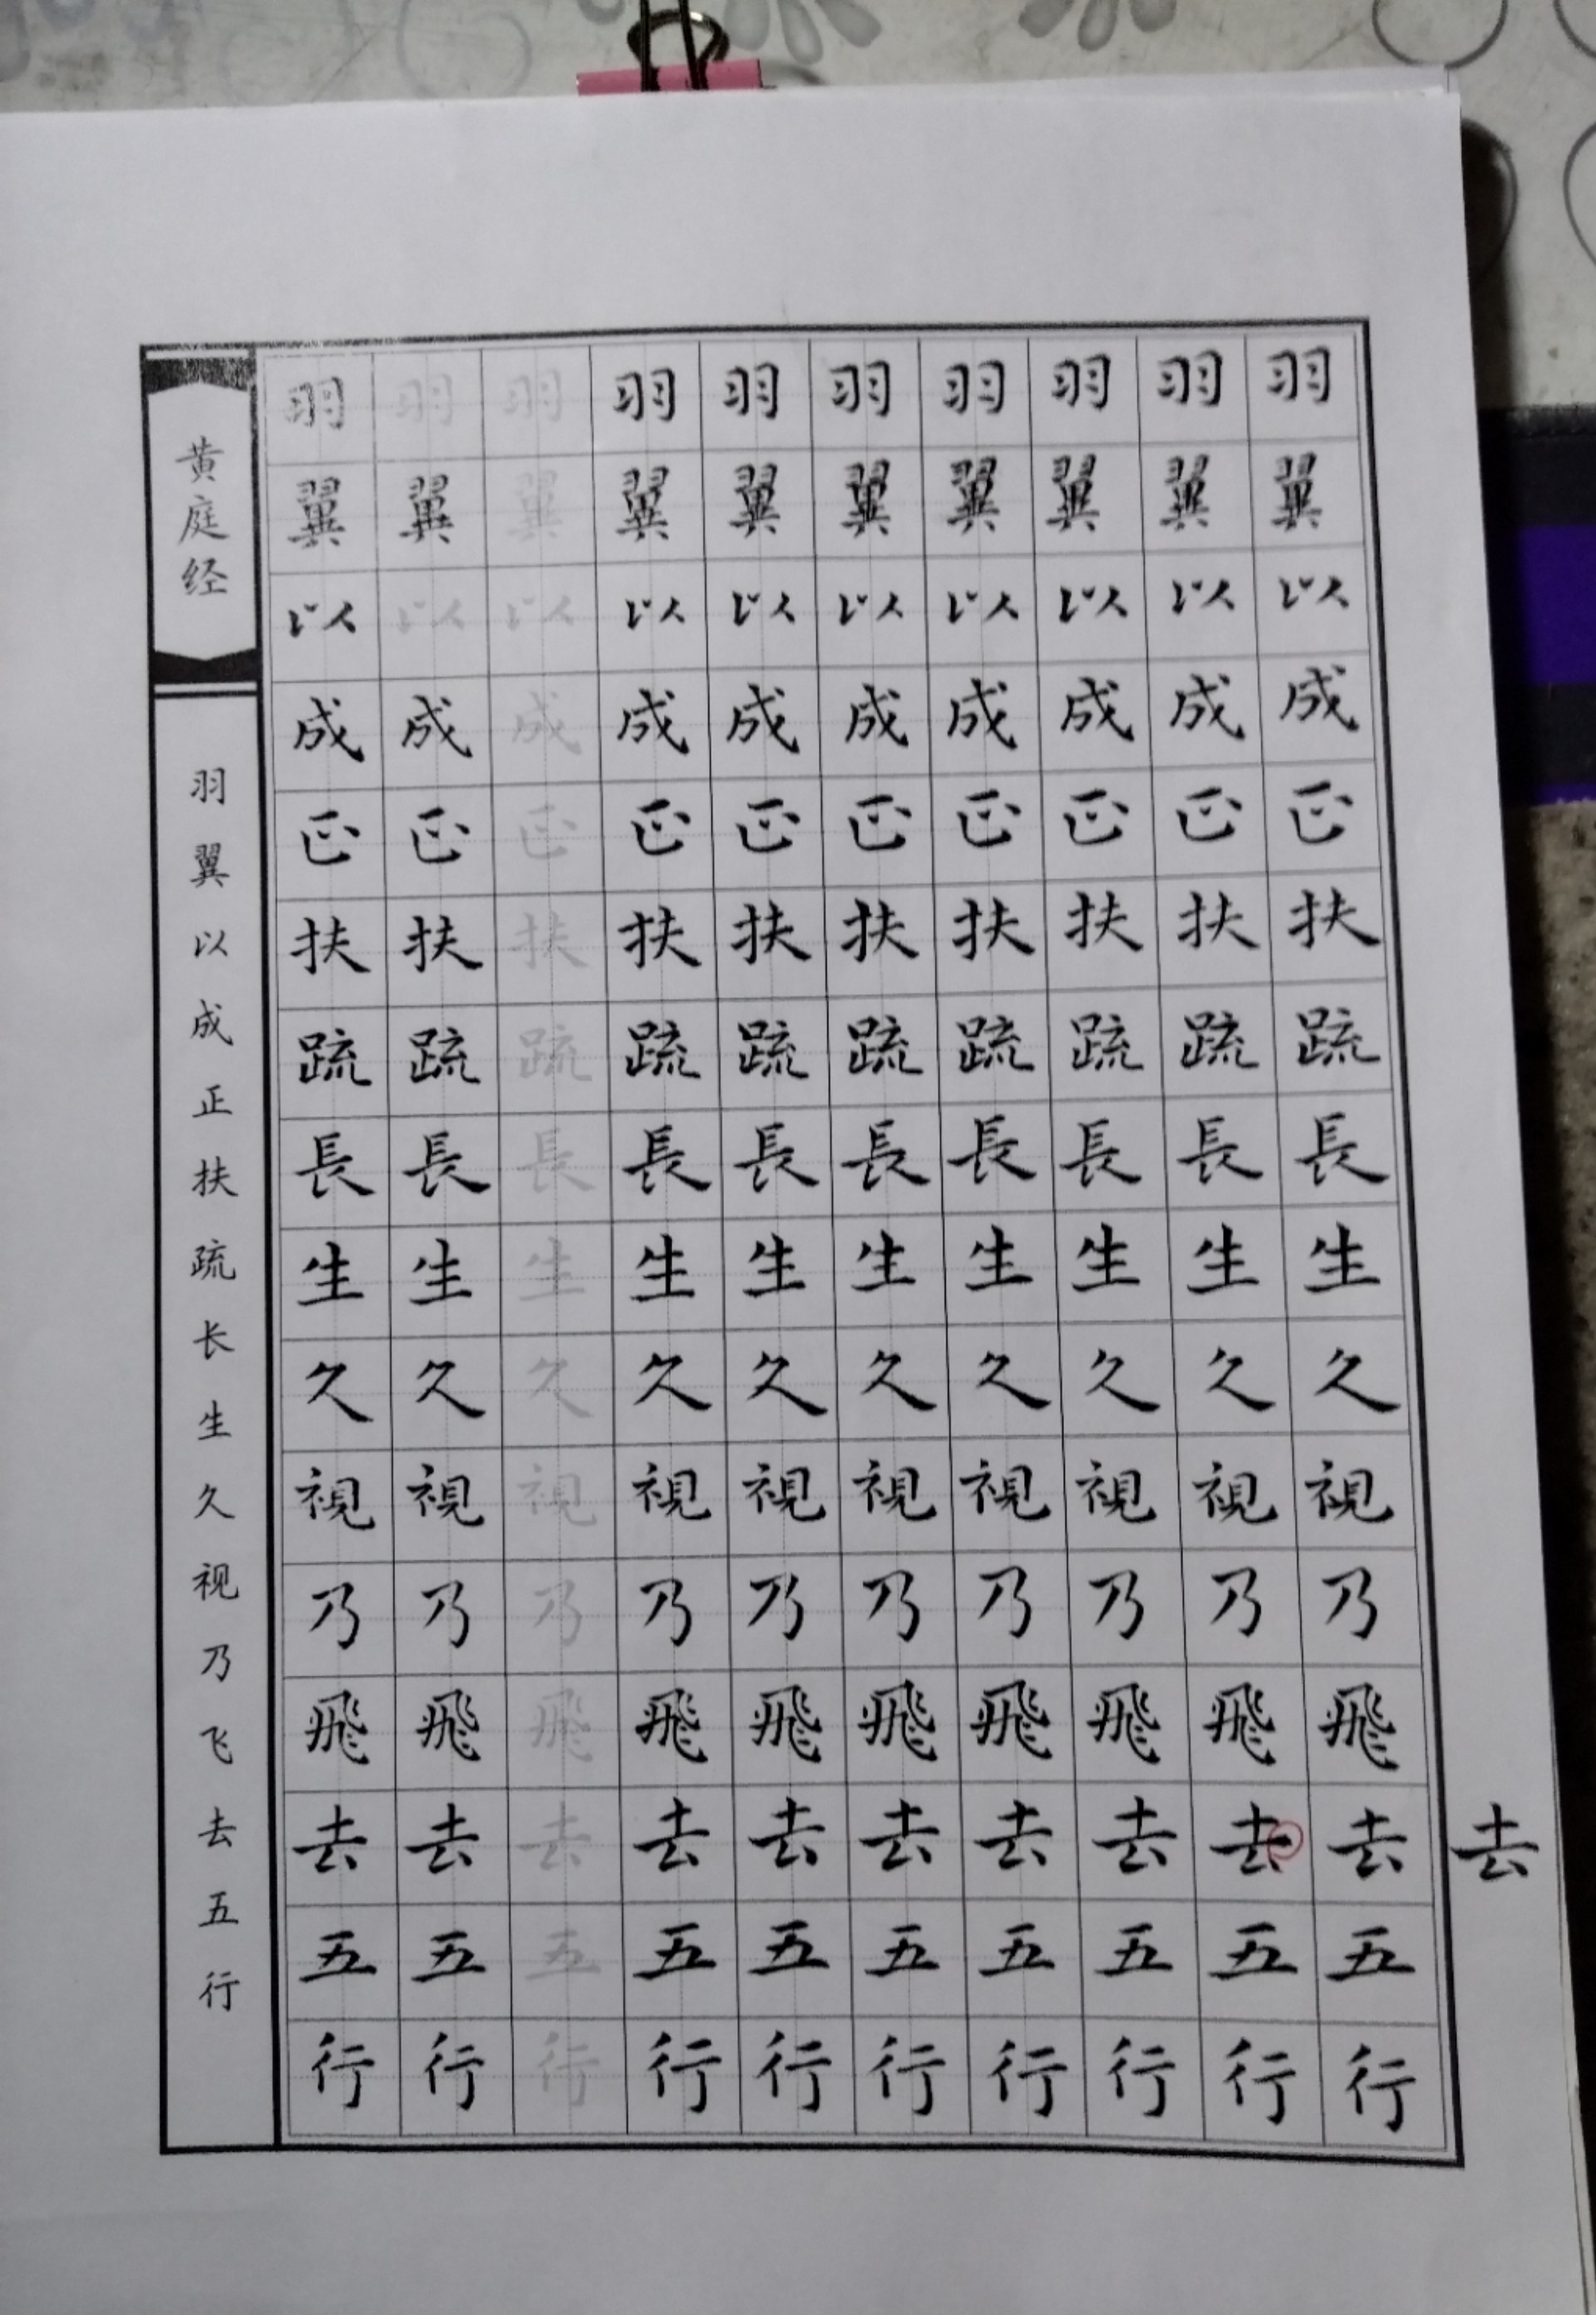 黄庭经
羽翼以成正扶疏长生久视乃飞去五行
羽翼以成正扶䟽長生久視乃飛去五行
羽翼以成正扶䟽長生久視乃飛去五行
羽翼以成正扶䟽長生久視乃飛去五行
羽翼以成正扶䟽長生久視乃飛去五行
羽翼以成正扶䟽長生久視乃飛去五行
羽翼以成正扶䟽長生久視乃飛去五行
羽翼以成正扶䟽長生久視乃飛去五行
羽翼以成正扶䟽長生久視乃飛去五行
羽翼以成正扶䟽長生久視乃飛去五行
羽翼以成正扶䟽長生久視乃飛去五行
去